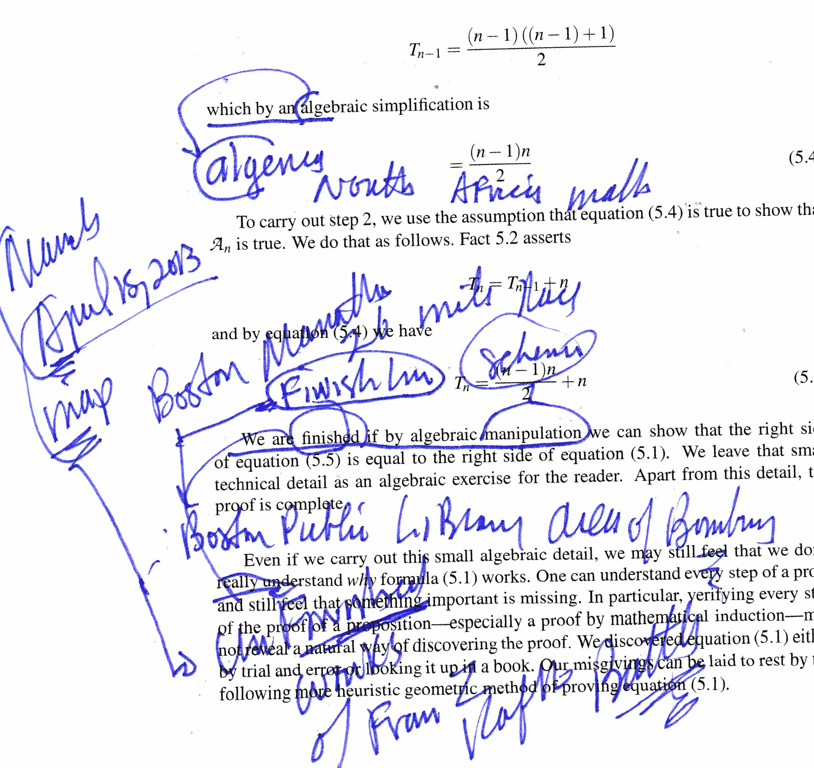 T_{n-1} = \frac{(n-1)((n-1)+1)}{2}
which by an algebraic simplification is
= \frac{(n-1)n}{2} (5.4
North Africa math
To carry out step 2, we use the assumption that equation (5.4) is true to show tha
𝒜_n is true. We do that as follows. Fact 5.2 asserts
April 15, 2013
T_n = T_{n-1} + n
and by equation (5.4) we have
map Boston
Finish Line
scheme
T_n = \frac{(n-1)n}{2} + n (5.
We are finished if by algebraic manipulation we can show that the right si
of equation (5.5) is equal to the right side of equation (5.1). We leave that sma
technical detail as an algebraic exercise for the reader. Apart from this detail, t
proof is complete.
Boston Public Library area of Bombing
Even if we carry out this small algebraic detail, we may still feel that we do
really understand why formula (5.1) works. One can understand every step of a pro
and still feel that something important is missing. In particular, verifying every st
of the proof of a proposition—especially a proof by mathematical induction—m
not reveal a natural way of discovering the proof. We discovered equation (5.1) eith
by trial and error or looking it up in a book. Our misgivings can be laid to rest by t
following more heuristic geometric method of proving equation (5.1).
Unfinished
works
of Franz Kafka